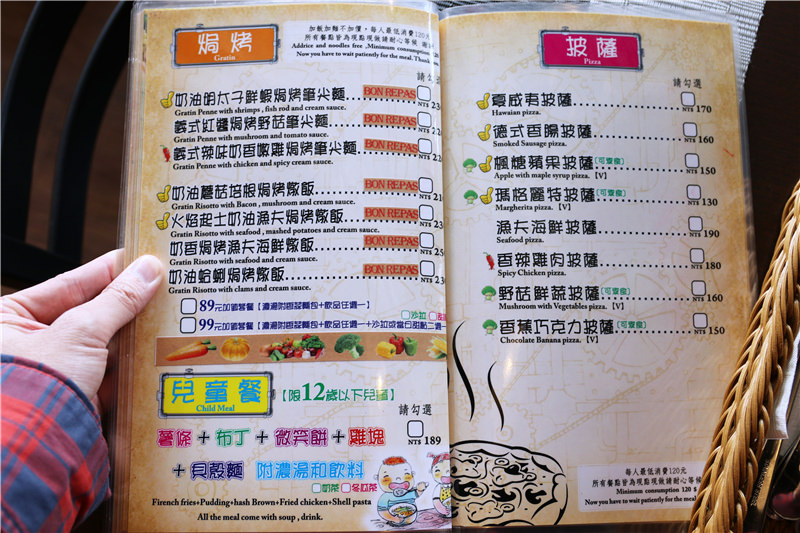 焗烤
Gratin
加飯加麵不加價，每人最低消費120元
所有餐點皆為現點現做請耐心等候
Addrice and noodles free ,Minimum consumption
Now you have to wait patiently for the meal.
請勾選
奶油明太子鮮蝦焗烤筆尖麵 BON REPAS NT$
Gratin Penne with shrimps , fish rod and cream sauce.
義式紅醬焗烤野菇筆尖麵 BON REPAS NT$
Gratin Penne with mushroom and tomato sauce.
義式辣味奶香嫩雞焗烤筆尖麵 BON REPAS NT$
Gratin Penne with chicken and spicy cream sauce.
奶油蘑菇培根焗烤燉飯 BON REPAS NT$
Gratin Risotto with Bacon , mushroom and cream sauce.
火焰起士奶油漁夫焗烤燉飯 BON REPAS NT$
Gratin Risotto with seafood , mashed potatoes and cream sauce.
奶香焗烤漁夫海鮮燉飯 BON REPAS NT$
Gratin Risotto with seafood and cream sauce.
奶油蛤蜊焗烤燉飯 BON REPAS NT$
Gratin Risotto with clams and cream sauce.
89元加購套餐【濃湯附香蒜麵包+飲品任選一】
99元加購套餐【濃湯附香蒜麵包+飲品任選一+沙拉或當日甜點二選
沙拉
兒童餐
Child Meal
【限12歲以下兒童】
請勾選
薯條+布丁+微笑餅+雞塊 NT$ 189
+貝殼麵 附濃湯和飲料
奶茶 冬瓜茶
Firench fries+Pudding+hash Brown+Fried chicken+Shell pasta
All the meal come with soup , drink.
披薩
Pizza
請勾選
夏威夷披薩 NT$ 170
Hawaian pizza.
德式香腸披薩 NT$ 160
Smoked Sausage pizza.
楓糖蘋果披薩(可素食) NT$ 150
Apple with maple syrup pizza. 【V】
瑪格麗特披薩(可素食) NT$ 130
Margherita pizza. 【V】
漁夫海鮮披薩 NT$ 190
Seafood pizza.
香辣雞肉披薩 NT$ 180
Spicy Chicken pizza.
野菇鮮蔬披薩(可素食) NT$ 160
Mushroom with Vegetables pizza.【V】
香蕉巧克力披薩(可素食) NT$ 150
Chocolate Banana pizza. 【V】
每人最低消費120元
所有餐點皆為現點現做請耐心等候
Minimum consumption 120 $
Now you have to wait patiently for the meal.